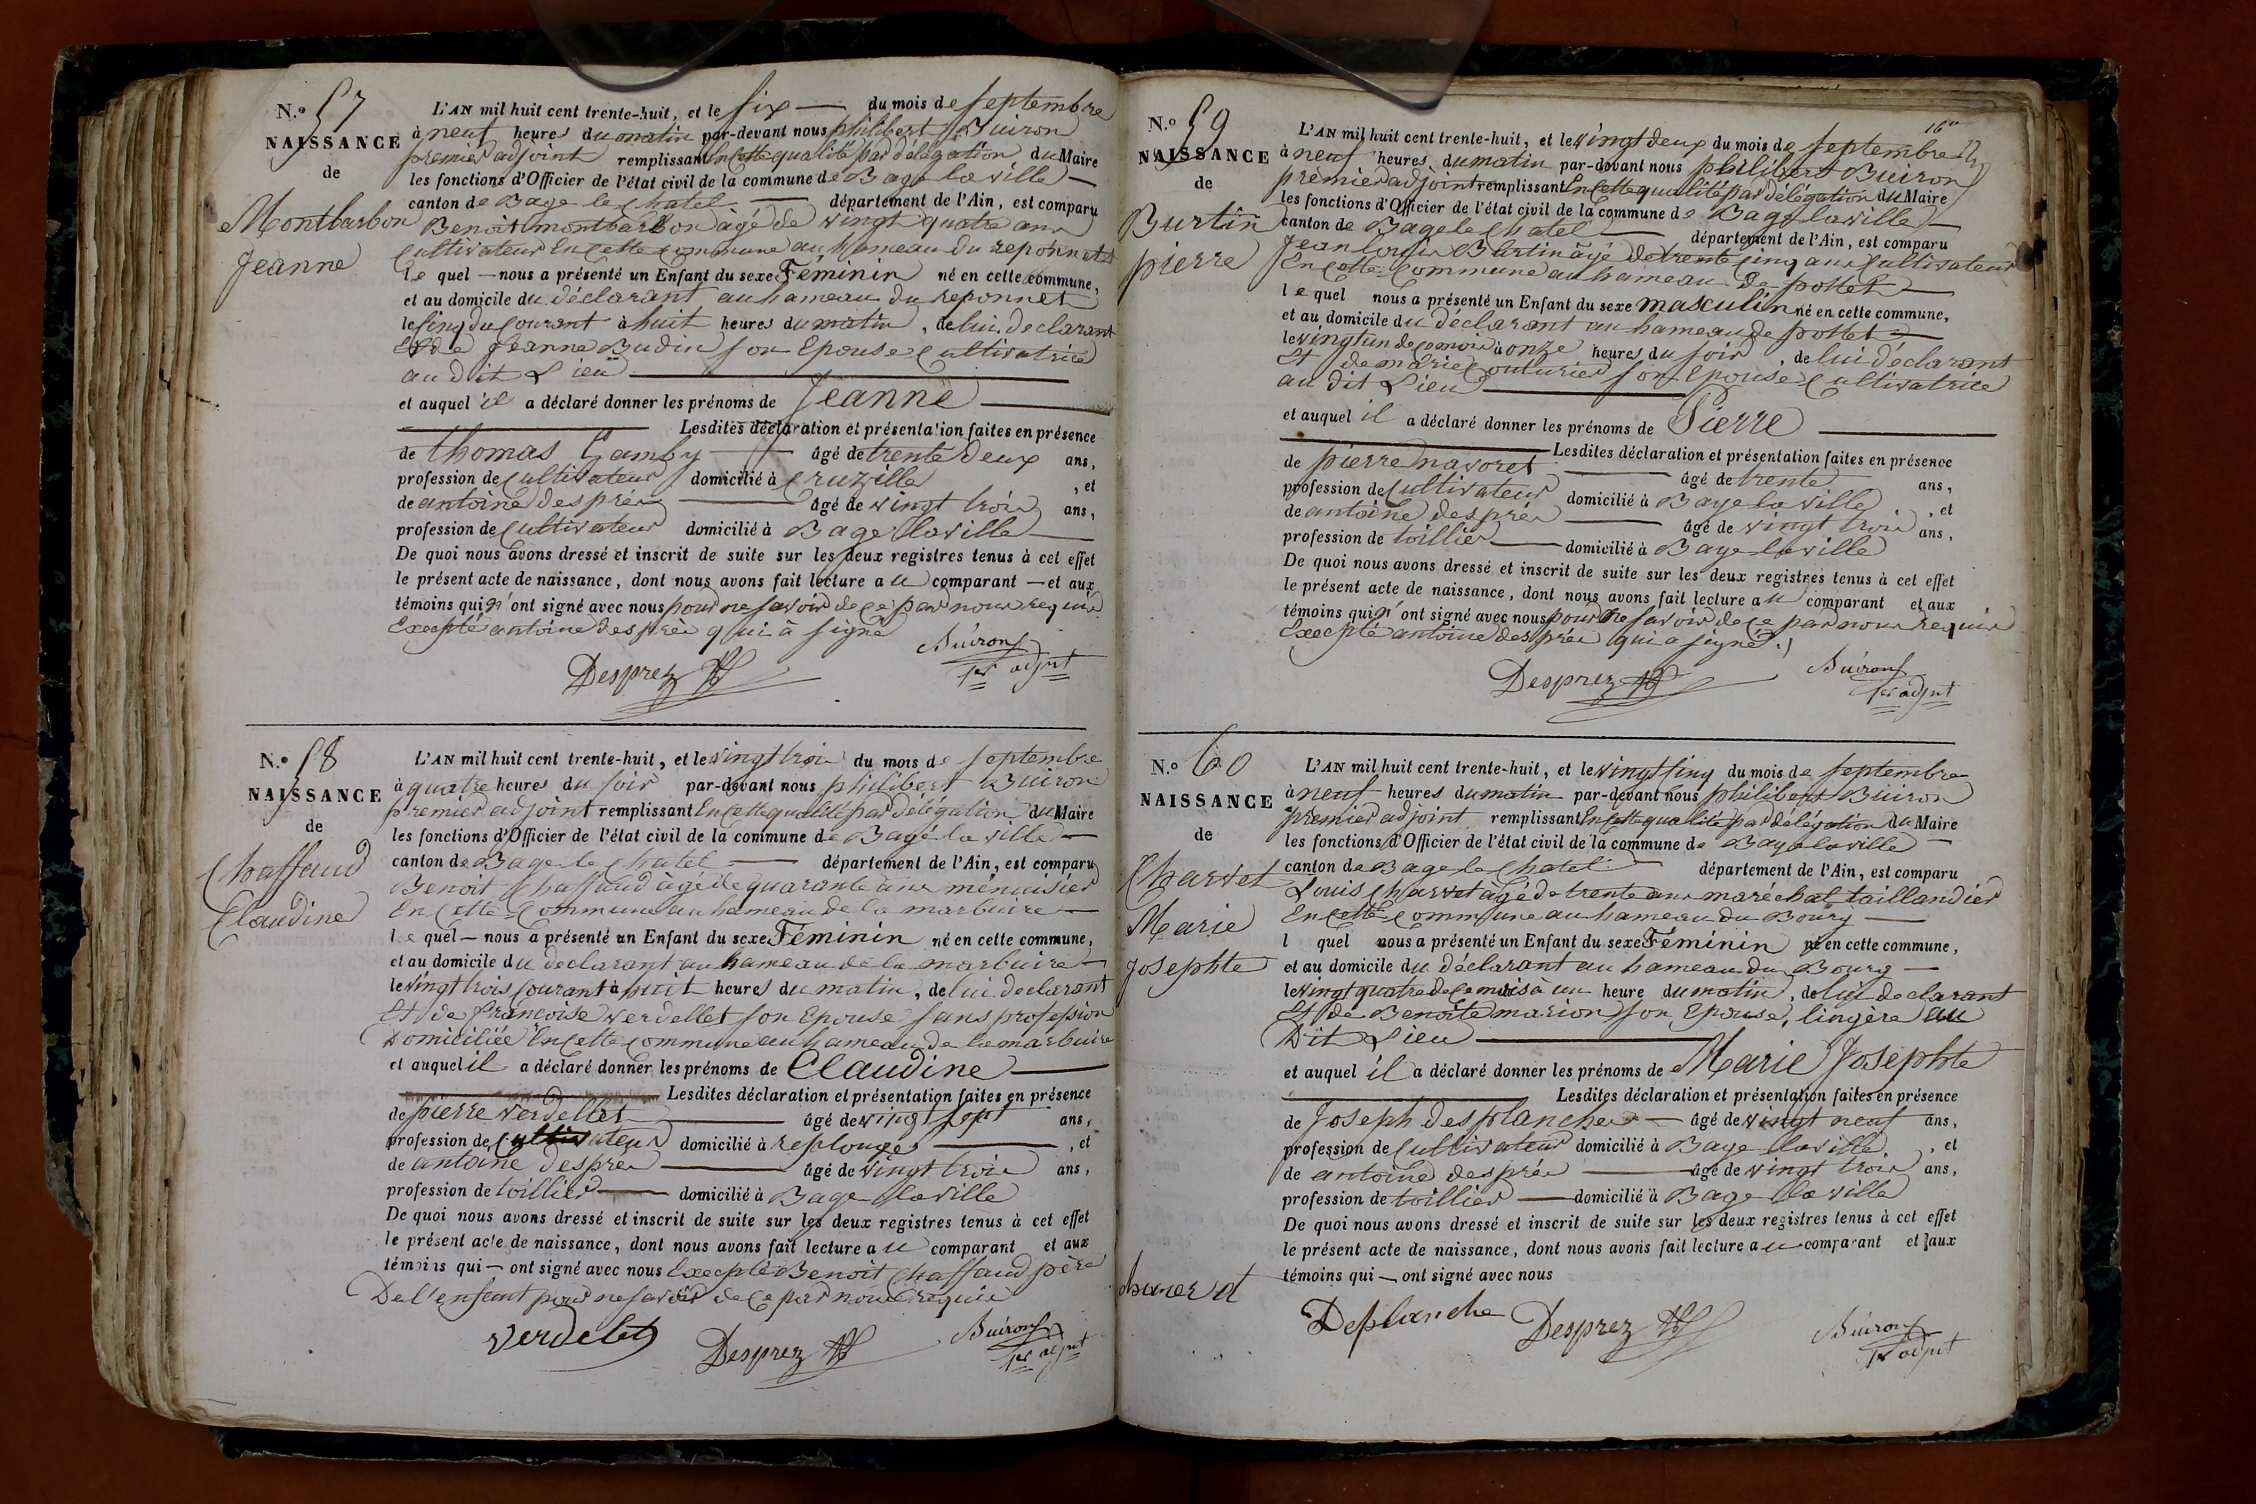 N.º 57
NAISSANCE
de
Montbarbon
Jeanne
L'AN mil huit cent trente-huit, et le six du mois de septembre
à neuf heures du matin par-devant nous philibert Buiron
premier adjoint remplissant en cette qualité par délégation du Maire
les fonctions d'Officier de l'état civil de la commune de Bage la ville
canton de Bage le chatel département de l'Ain, est comparu
Benoit montbarbon âgé de vingt quatre ans
Cultivateur En cette commune au hameau du reponnet
le quel nous a présenté un Enfant du sexe Féminin né en cette commune,
et au domicile du déclarant au hameau du reponnet
le cinq du courant à huit heures du matin, de lui déclarant
Et de Jeanne Budin son Epouse Cultivatrice
au dit Lieu
et auquel il a déclaré donner les prénoms de Jeanne
Lesdites déclaration et présentation faites en présence
de thomas Gamby âgé de trente deux ans,
profession de Cultivateur domicilié à Cruzille, et
de antoine després âgé de vingt trois ans,
profession de Cultivateur domicilié à Bage la ville
De quoi nous avons dressé et inscrit de suite sur les deux registres tenus à cet effet
le présent acte de naissance, dont nous avons fait lecture au comparant et aux
témoins qui n'ont signé avec nous pour ne savoir de ce par nous requis
Excepté antoine després qui à signé
Desprez
Buiron
1er adjnt
N.º 58
NAISSANCE
de
Chaffaud
Claudine
L'AN mil huit cent trente-huit, et le vingt trois du mois de septembre
à quatre heures du soir par-devant nous philibert Buiron
premier adjoint remplissant En cette qualité par délégation du Maire
les fonctions d'Officier de l'état civil de la commune de Bagé la ville
canton de Bage le chatel département de l'Ain, est comparu
Benoit Chaffaud âgé de quarante ans ménuisier
En cette commune au hameau de la marbuire
le quel nous a présenté un Enfant du sexe Féminin né en cette commune,
et au domicile du declarant au hameau de la marbuire
le vingt trois courant à huit heures du matin, de lui declarant
Et de françoise verdellet son Epouse sans profession
Domiciliée En cette commune au hameau de la marbuire
et auquel il a déclaré donner les prénoms de Claudine
Lesdites déclaration et présentation faites en présence
de pierre verdellet âgé de vingt sept ans,
profession de Cultivateur domicilié à replonges, et
de antoine després âgé de vingt trois ans,
profession de toillier domicilié à Bage la ville
De quoi nous avons dressé et inscrit de suite sur les deux registres tenus à cet effet
le présent acte de naissance, dont nous avons fait lecture au comparant et aux
témoins qui ont signé avec nous Excepté Benoit Chaffaud père
De l'enfant pour ne savoir de ce par nous requis
Verdelet
Desprez
Buiron
1er adjnt
N.º 59
NAISSANCE
de
Burtin
pierre
L'AN mil huit cent trente-huit, et le vingt deux du mois de septembre
à neuf heures du matin par-devant nous philibert Buiron
premier adjoint remplissant En cette qualité par délégation du Maire
les fonctions d'Officier de l'état civil de la commune de Bage la ville
canton de Bage le chatel département de l'Ain, est comparu
Jean Louis Burtin âgé de trente cinq ans Cultivateur
En cette commune au hameau de pottet
le quel nous a présenté un Enfant du sexe masculin né en cette commune,
et au domicile du déclarant au hameau de pottet
le vingt un de ce mois à onze heures du soir, de lui déclarant
Et de marie Couturier son Epouse Cultivatrice
au dit Lieu
et auquel il a déclaré donner les prénoms de Pierre
Lesdites déclaration et présentation faites en présence
de pierre navoret âgé de trente ans,
profession de Cultivateur domicilié à Bage la ville, et
de antoine després âgé de vingt trois ans,
profession de toillier domicilié à Bage la ville
De quoi nous avons dressé et inscrit de suite sur les deux registres tenus à cet effet
le présent acte de naissance, dont nous avons fait lecture au comparant et aux
témoins qui n'ont signé avec nous pour ne savoir de ce par nous requis
Excepté antoine després qui a signé
Desprez
Buiron
1er adjnt
N.º 60
NAISSANCE
de
Charvet
Marie
Josephte
L'AN mil huit cent trente-huit, et le vingt cinq du mois de septembre
à neuf heures du matin par-devant nous philibert Buiron
premier adjoint remplissant En cette qualité par délégation du Maire
les fonctions d'Officier de l'état civil de la commune de Bage la ville
canton de Bage le chatel département de l'Ain, est comparu
Louis Charvet âgé de trente ans maréchal taillandier
En cette commune au hameau du Bourg
l quel nous a présenté un Enfant du sexe Féminin né en cette commune,
et au domicile du déclarant au hameau du Bourg
le vingt quatre de ce mois à un heure du matin, de lui declarant
Et de Benoite marion son Epouse, lingère au
Dit Lieu
et auquel il a déclaré donner les prénoms de Marie Josephte
Lesdites déclaration et présentation faites en présence
de Joseph desplanches âgé de vingt neuf ans,
profession de Cultivateur domicilié à Bage la ville, et
de antoine després âgé de vingt trois ans,
profession de toillier domicilié à Bage la ville
De quoi nous avons dressé et inscrit de suite sur les deux registres tenus à cet effet
le présent acte de naissance, dont nous avons fait lecture au comparant et aux
témoins qui ont signé avec nous
Deplanche
Desprez
Buiron
1er adjnt